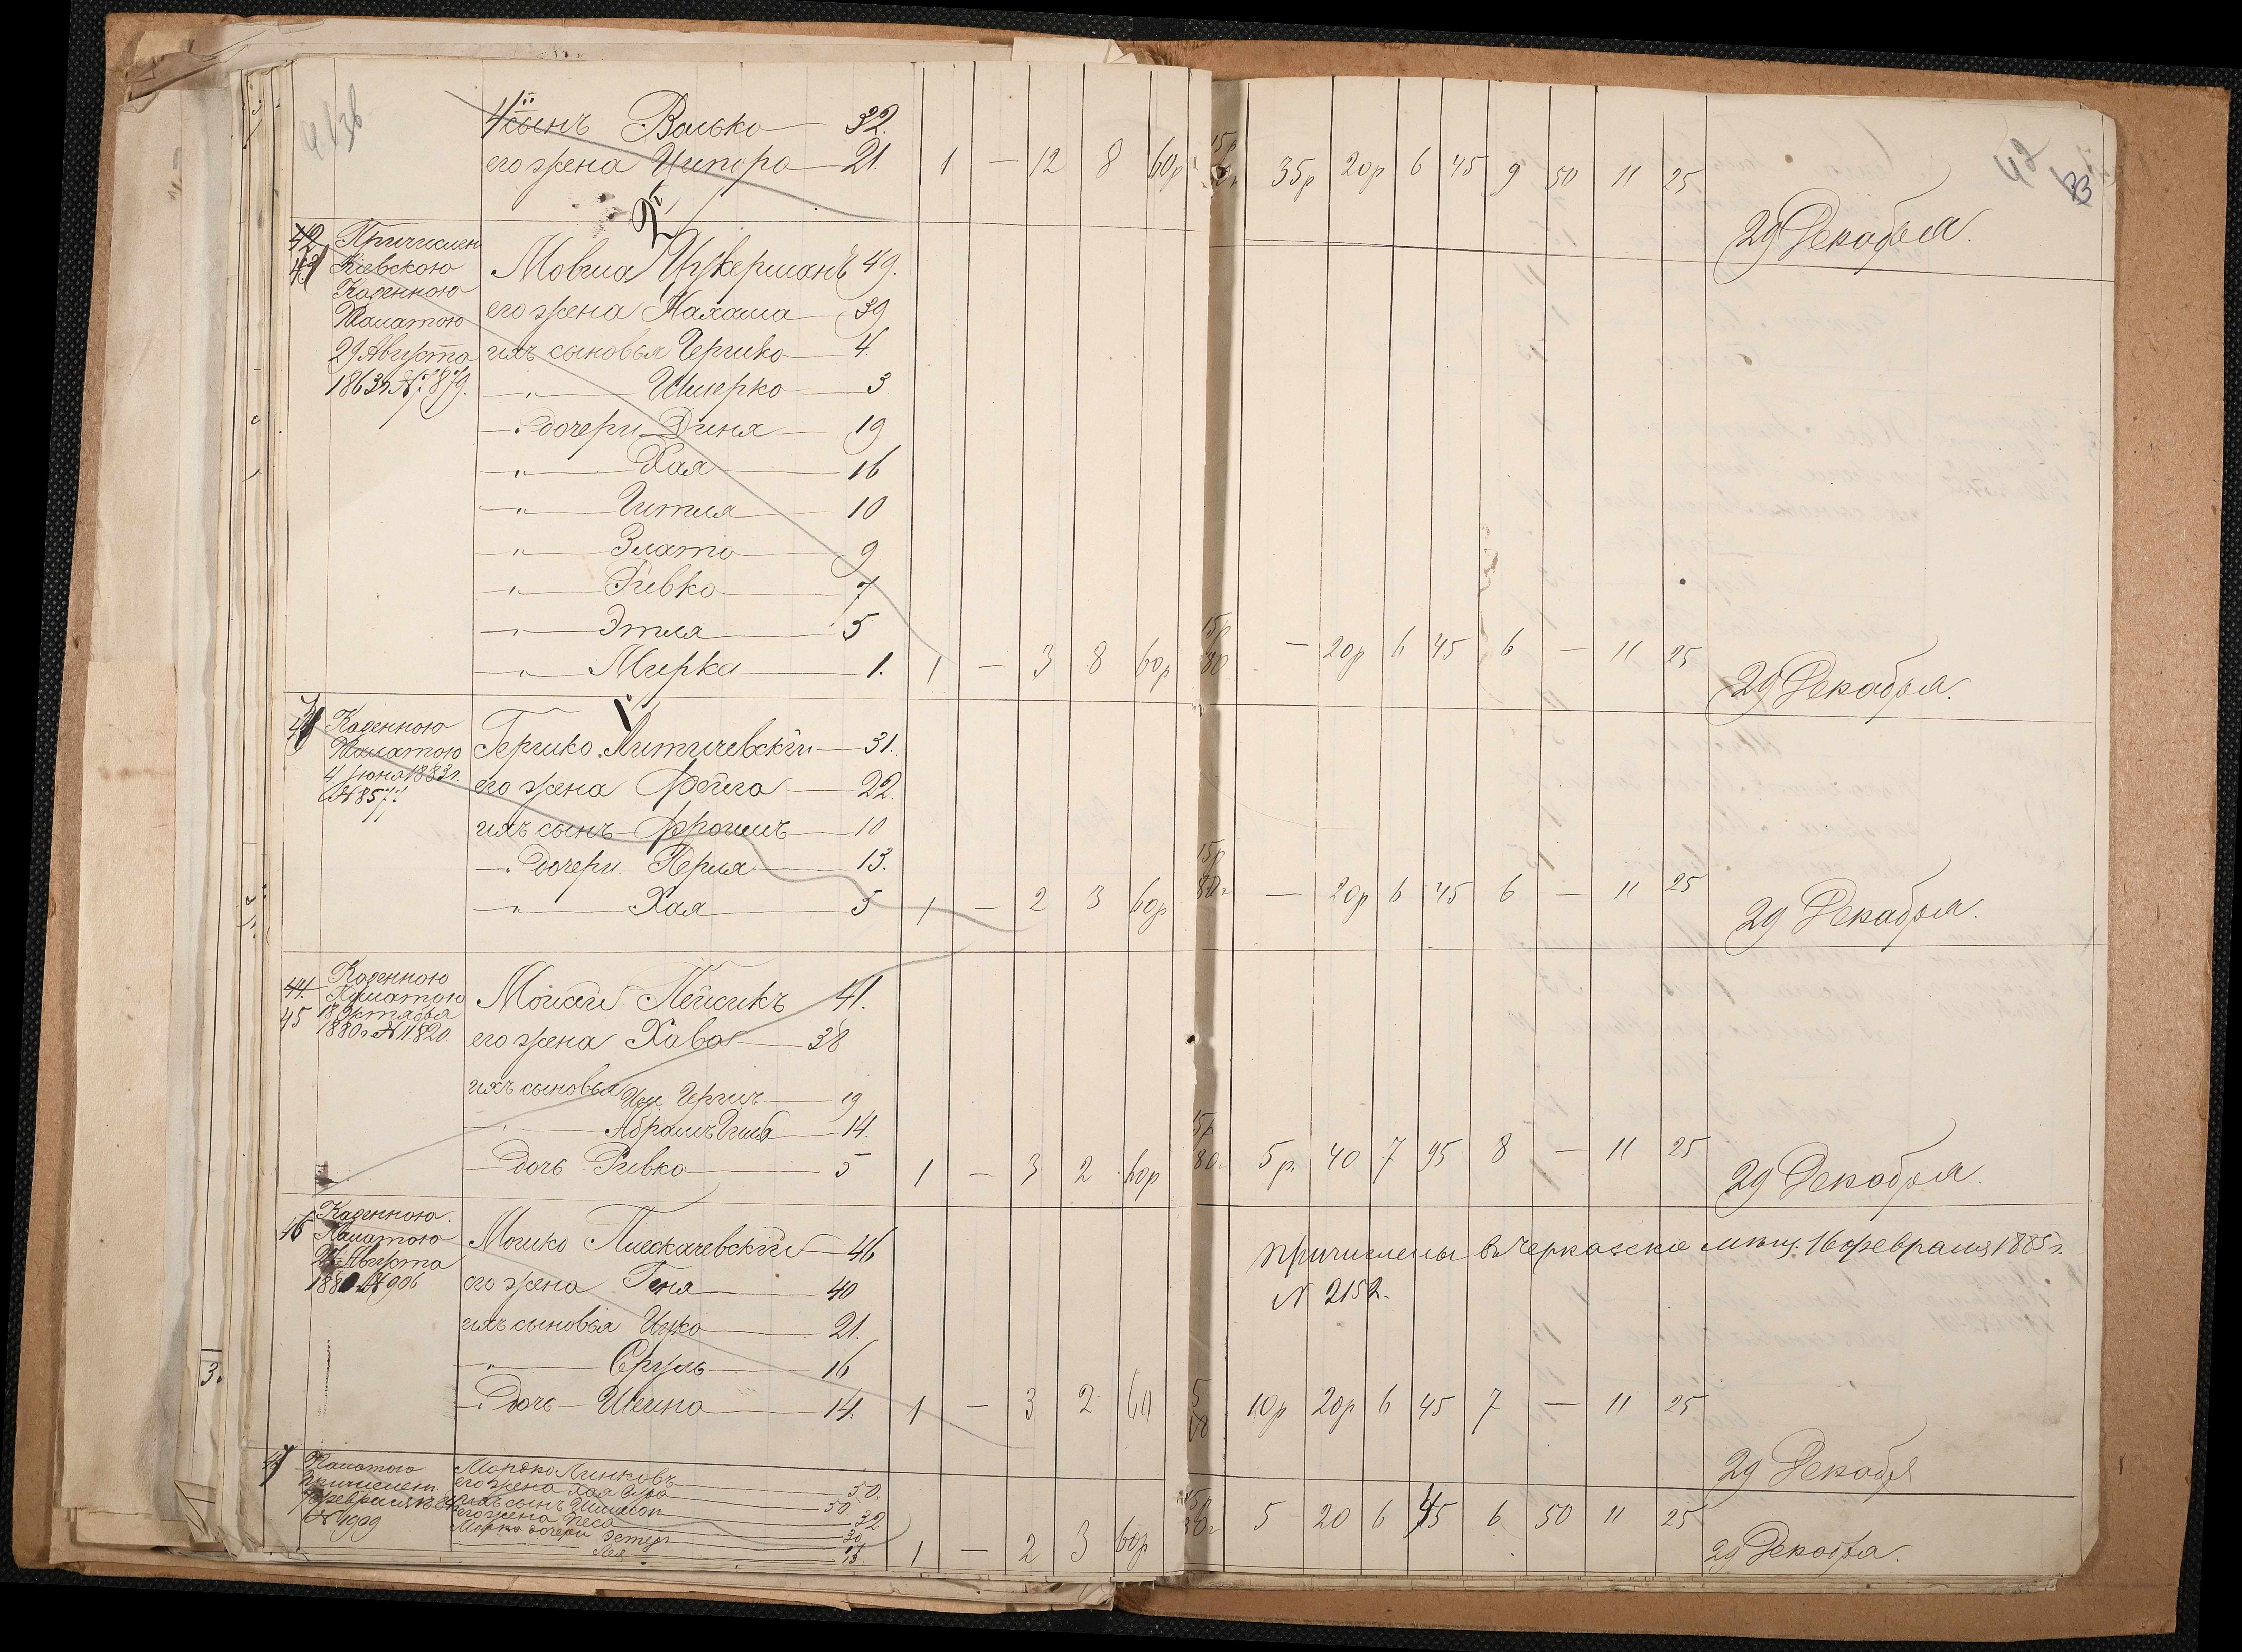 4й сынъ Волько 32.
его жена Ципора 21. 1 — 12 8 60р 15р 35р 20р 6 45 9 50 11 25
29 Декабря.
42 Причислен
43 Кіевскою Мовша Цукерманъ 49.
Казенною
Палатою его жена Малаша 39
29 Августа ихъ сыновья Гершко 4.
1863г. № 7879. —„— Шмерко 3
— дочери Диня 19
—„— Хая 16
—„— Гитля 10
—„— Злата 9
—„— Ривка 7
—„— Этля 5
—„— Мирка 1. 1 — 3 8 60р 15р 80 — 20р 6 45 6 — 11 25
29 Декабря.
Казенною
Палатою Гершко Литичевскій 31.
4 Іюня 1883г. его жена Фейга 22.
№ 857.
ихъ сынъ Фроимъ 10
—„ дочери Перля 13.
—„— Хая 5 1 — 2 3 60р 15р 80к — 20р 6 45 6 — 11 25
29 Декабря.
Казенною
44. Палатою Мойсей Пейсикъ 41.
45 18 Октября
1880г № 11820. его жена Хава 38
ихъ сыновья Гершъ 19
—„— Абрамъ 14.
— дочь Ривка 5 1 — 3 2 60р 15р 80к 5р. 40 7 95 8 — 11 25
29 Декабря.
Казенною.
46 Палатою Мошко Плескачевскій 46
Августа причислены въ Черкаскіе мѣщ. 16 февраля 1885г.
№ 906 его жена Геня 40 № 2152.
ихъ сыновья Ицко 21.
—„— Сруль 16
—„ дочь Шейна 14. 1 — 3 2 60 10р 20р 6 45 7 — 11 25
29 Декабя
47 Палатою Мордко Линковъ 50.
причислен. его жена Хая Сура 50.
февраля ихъ сынъ Шимсон 32
№ 4999 его жена Песа 30
Мордка дочери Эстеръ
Лея 13 1 — 2 3 60р 15р 5 20 6 45 6 50 11 25
29 Декабра.